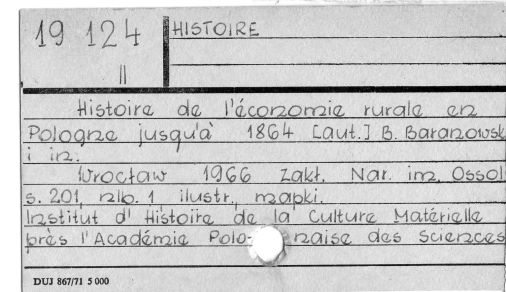 19 124
II
HISTOIRE
Histoire de l'économie rurale en
Pologne jusqu'à 1864 [aut.] B. Baranowsk
i in.
Wrocław 1966 Zakł. Nar. im. Ossol
s. 201, nlb. 1 ilustr., mapki.
Institut d'Histoire de la Culture Matérielle
près l'Académie Polo- naise des Sciences
DUJ 867/71 5 000